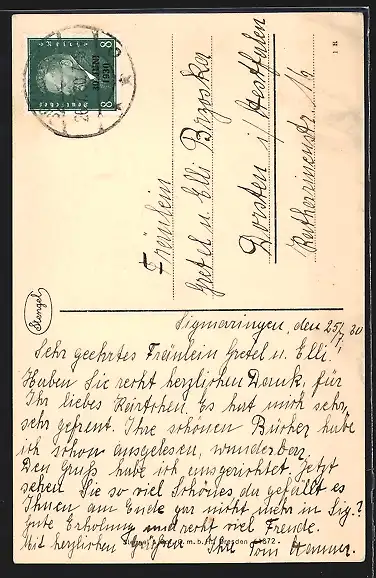 Fräulein
Gretel u. Elli Brzoska
Dorsten i/Westfalen
Katharinenstr. 16
Stengel
1 B
Sigmaringen, den 25/7. 30
Sehr geehrtes Fräulein Gretel u. Elli!
Haben Sie recht herzlichen Dank, für
Ihr liebes Kärtchen. Es hat mich sehr,
sehr gefreut. Ihre schönen Bücher habe
ich schon ausgelesen, wunderbar.
Den Gruß habe ich ausgerichtet. Jetzt
sehen Sie so viel Schönes, da gefällt es
Ihnen am Ende gar nicht mehr in Sig.?
Gute Erholung und recht viel Freude.
Mit herzlichen Grüßen Ihre Toni
Stengel & Co., G. m. b. H., Dresden
8
8
Deutsches
Reich